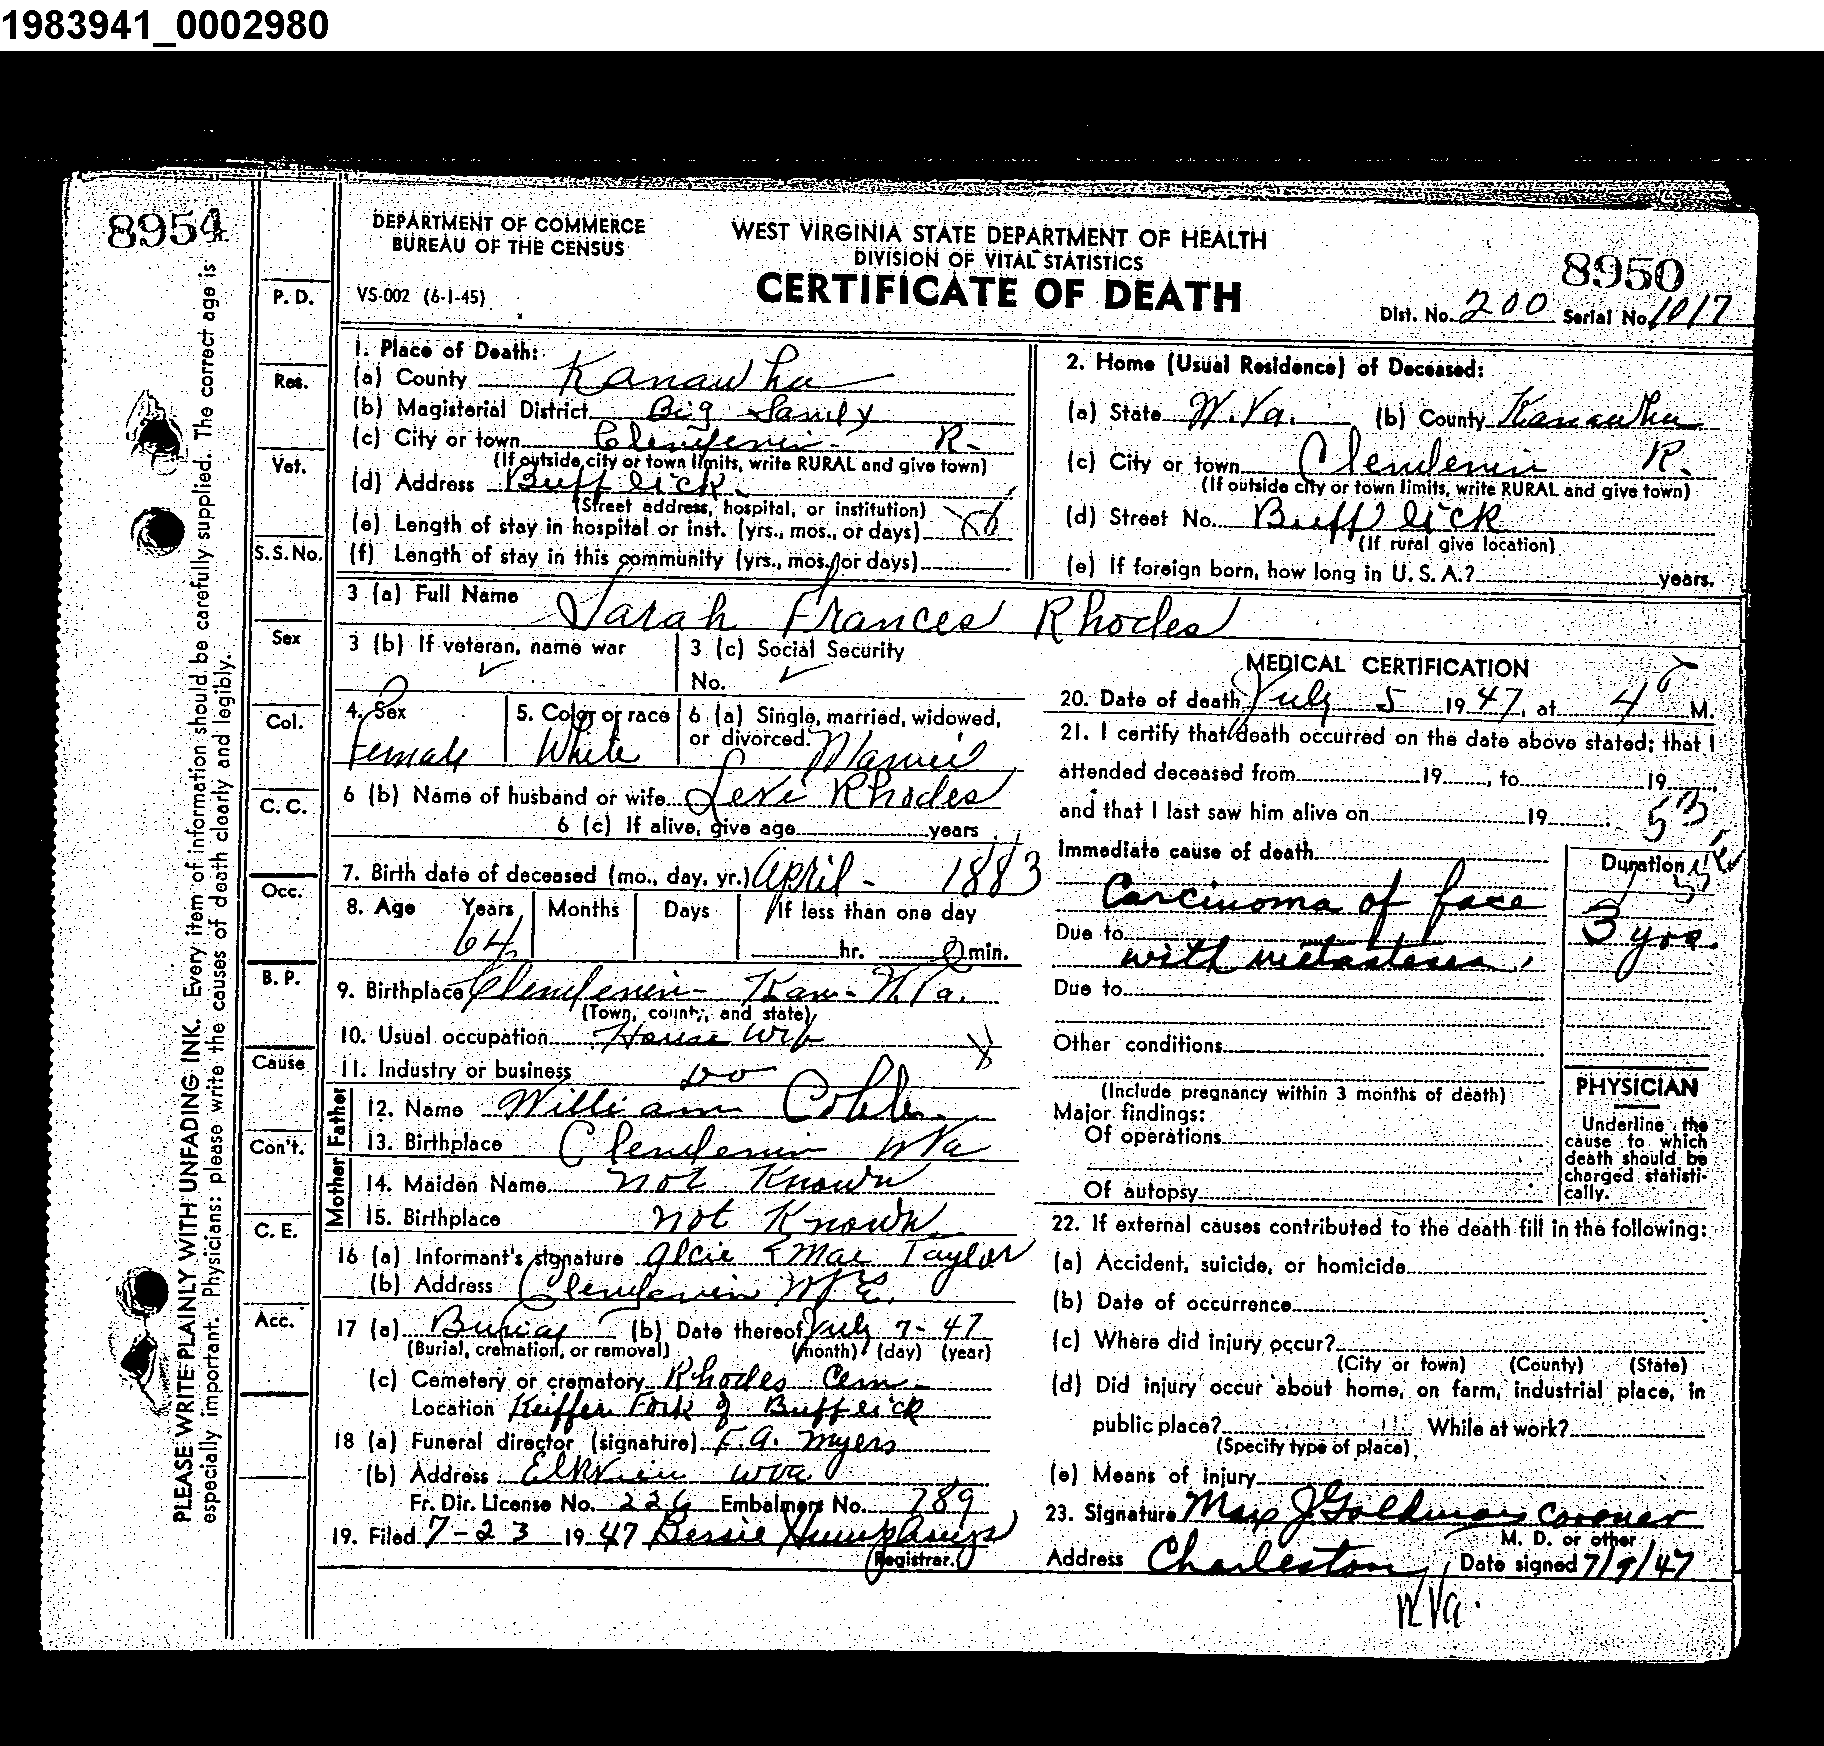 1983941_0002980
8954
DEPARTMENT OF COMMERCE
BUREAU OF THE CENSUS
VS-002 (6-1-45)
WEST VIRGINIA STATE DEPARTMENT OF HEALTH
DIVISION OF VITAL STATISTICS
CERTIFICATE OF DEATH
8950
Dist. No. 200 Serial No. 1017
PLEASE WRITE PLAINLY WITH UNFADING INK. Every item of information should be carefully supplied. The correct age is
especially important. Physicians: please write the causes of death clearly and legibly.
P. D.
Res.
Vet.
S.S.No.
Sex
Col.
C. C.
Occ.
B. P.
Cause
Con't.
C. E.
Acc.
1. Place of Death:
(a) County Kanawha
(b) Magisterial District Big Sandy
(c) City or town Clendenin R.
(If outside city or town limits, write RURAL and give town)
(d) Address Buff lick
(Street address, hospital, or institution)
(e) Length of stay in hospital or inst. (yrs., mos., or days)
(f) Length of stay in this community (yrs., mos., or days)
2. Home (Usual Residence) of Deceased:
(a) State W. Va. (b) County Kanawha
(c) City or town Clendenin R.
(If outside city or town limits, write RURAL and give town)
(d) Street No. Buff lick
(If rural give location)
(e) If foreign born, how long in U. S. A.? years.
3 (a) Full Name Sarah Frances Rhodes
3 (b) If veteran, name war ✓
3 (c) Social Security
No. ✓
4. Sex
Female
5. Color or race
White
6 (a) Single, married, widowed,
or divorced. Married
6 (b) Name of husband or wife Levi Rhodes
6 (c) If alive, give age years
7. Birth date of deceased (mo., day, yr.) April - 1883
8. Age Years Months Days If less than one day
64 hr. min.
9. Birthplace Clendenin - Kan - W. Va.
(Town, county, and state)
10. Usual occupation House Wife
11. Industry or business
Father
12. Name William
13. Birthplace Clendenin W Va
Mother
14. Maiden Name not Known
15. Birthplace not Known
16 (a) Informant's signature Mae Taylor
(b) Address Clendenin
17 (a) Burial (b) Date thereof July 7 - 47
(Burial, cremation, or removal) (month) (day) (year)
(c) Cemetery or crematory Rhodes Cem
Location Keiffer Fork of Buff lick
18 (a) Funeral director (signature) F. A. Myers
(b) Address Elkview W Va
Fr. Dir. License No. 226 Embalmers No. 789
19. Filed 7-23 1947 Bessie Humphreys
Registrar.
MEDICAL CERTIFICATION
20. Date of death July 5 1947, at 4 M.
21. I certify that death occurred on the date above stated; that I
attended deceased from 19 , to 19
and that I last saw him alive on 19
Immediate cause of death
Duration
Carcinoma of face
3 yrs.
Due to with metastases
Due to
Other conditions
(Include pregnancy within 3 months of death)
Major findings:
Of operations
Of autopsy
PHYSICIAN
Underline the
cause to which
death should be
charged statisti-
cally.
22. If external causes contributed to the death fill in the following:
(a) Accident, suicide, or homicide
(b) Date of occurrence
(c) Where did injury occur?
(City or town) (County) (State)
(d) Did injury occur about home, on farm, industrial place, in
public place? While at work?
(Specify type of place)
(e) Means of injury
23. Signature Max J Goldman Coroner
M. D. or other
Address Charleston, Date signed 7/9/47
W Va.